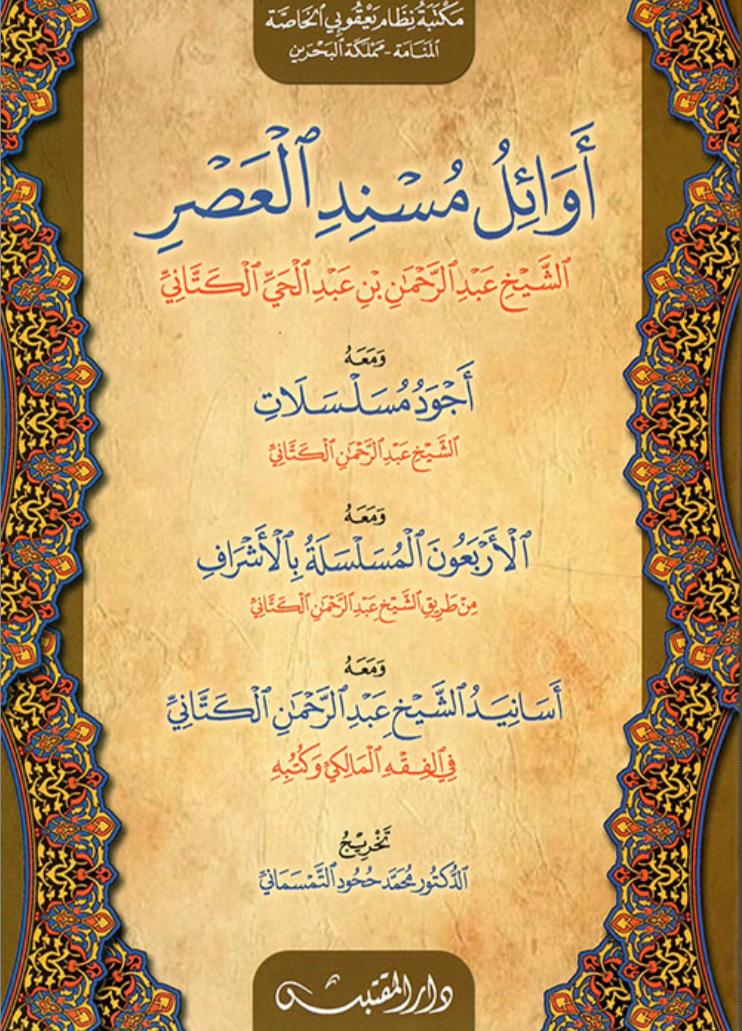 مَكتَبَةُ نِظَام يَعْقُوبي الخَاصَّة
المَنَامَة - مَمْلَكَة البَحْرَين
أَوَائِلُ مُسْنِدِ الْعَصْرِ
الشَّيْخِ عَبْدِ الرَّحْمَٰنِ بْنِ عَبْدِ الْحَيِّ الْكَتَّانِيِّ
وَمَعَهُ
أَجْوَدُ مُسَلْسَلَاتِ
الشَّيْخِ عَبْدِ الرَّحْمَٰنِ الْكَتَّانِيِّ
وَمَعَهُ
الْأَرْبَعُونَ الْمُسَلْسَلَةُ بِالْأَشْرَافِ
مِنْ طَرِيقِ الشَّيْخِ عَبْدِ الرَّحْمَٰنِ الْكَتَّانِيِّ
وَمَعَهُ
أَسَانِيدُ الشَّيْخِ عَبْدِ الرَّحْمَٰنِ الْكَتَّانِيِّ
فِي الْفِقْهِ الْمَالِكِيِّ وَكُتُبِهِ
تَخْرِيجُ
الدُّكْتُور مُحَمَّد حُحُود التَّمْسَمَانِيِّ
دار المقتبس